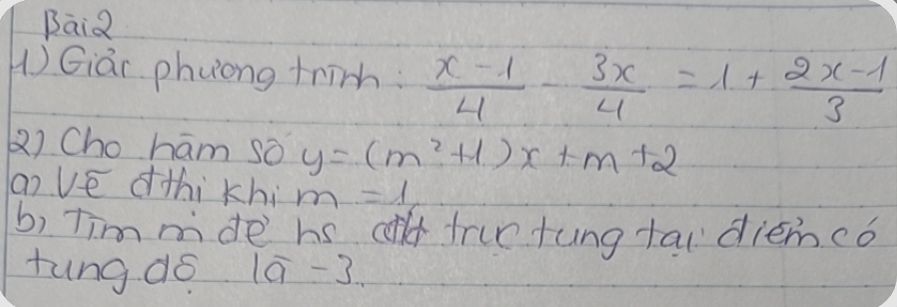 Bài 2
1) Giải phương trình: (x - 1)/4 - 3x/4 = 1 + (2x - 1)/3
2) Cho hàm số y = (m² + 1)x + m + 2
a) Vẽ đthị khi m = 1
b) Tìm m để hs cắt trục tung tại điểm có
tung độ là -3.